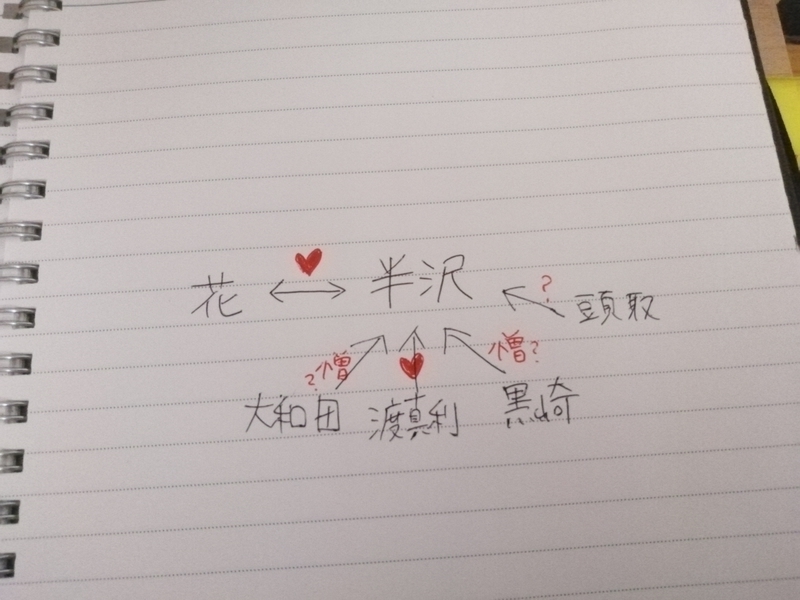 ♥
花 ↔ 半沢
? 頭取
?憎 ♥ 憎?
大和田 渡真利 黒崎